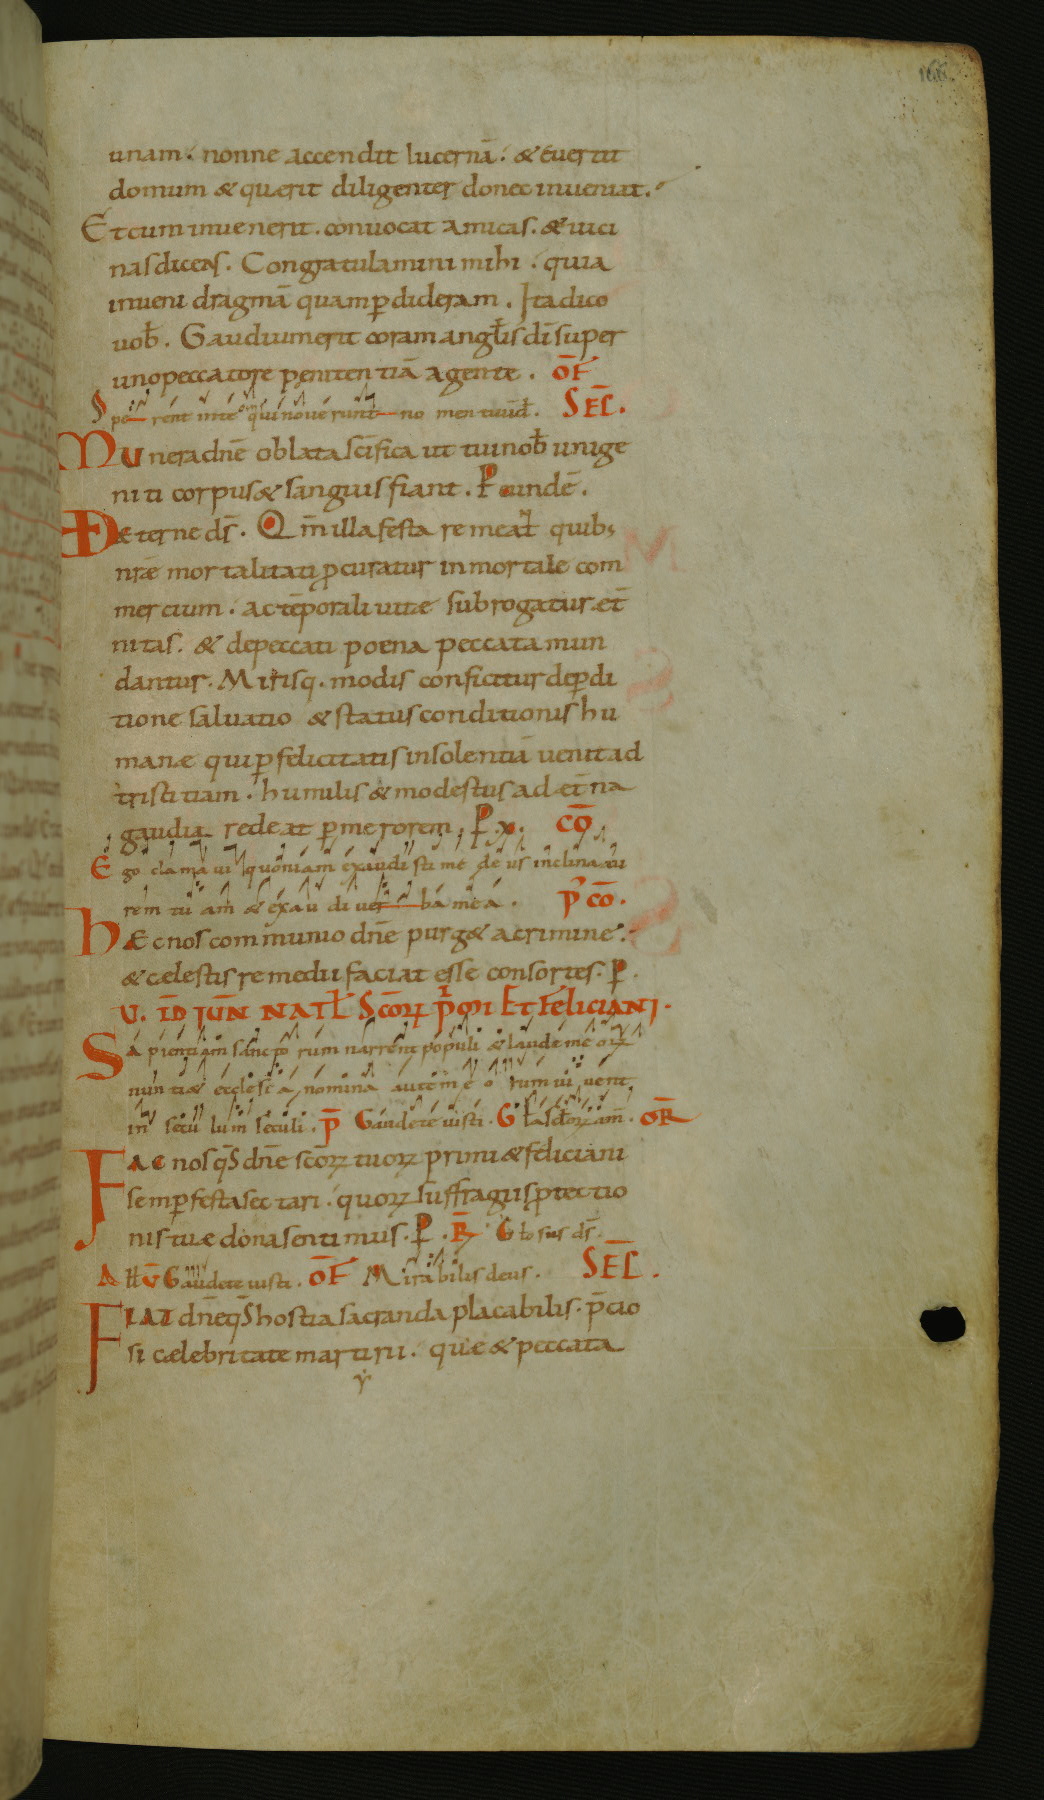 unam. nonne accendit lucernā. & euertit
domum & querit diligenter donec inueniat.
Et cum inuenerit. conuocat amicas. & uici
nas dicens. Congratulamini mihi. quia
inueni dragmā quam p̄dideram. Ita dico
uob̄. Gaudium erit coram angl̄is dī super
uno peccatore penitentiā agente. OF̄
Sperent in te qui nouerunt nomen tuum d̄. SEC̄.
Munera dn̄e oblata sc̄ifica ut tui nob̄ unige
niti corpus & sanguis fiant. P eundē.
VD aeterne ds̄. Qm̄ illa festa remeat quib;
nr̄ae mortalitati p̄curatur inmortale com
mercium. ac tēporali uitae subrogatur aet̄
nitas. & de peccati poena peccata mun
dantur. Mirisq. modis conficitur de p̄di
tione saluatio & status conditionis hu
manae qui p̄ felicitatis insolentiā uenit ad
tristitiam. humilis & modestus ad aet̄na
gaudia redeat p̄ merorem. P x. CŌ
Ego clamaui quoniam exaudisti me deus inclina au
rem tuam & exaudi uerba mea. P̄ CŌ.
Haec nos communio dn̄e purg& a crimine.
& caelestis remedii faciat esse consortes. P.
V. ID̄ IUN̄ NATL̄ SCŌRꝜ PRIMI ET FELICIANI.
Sapientiam sanctorum narrent populi & laudem eorꝝ
nunti& ecclesia, nomina autem eorum uiuent
in seculum seculi. P̄ Gaudete iusti. Gl̄a sclorꝝ am̄. OR̄
Fac nos qs̄ dn̄e sc̄orꝝ tuorꝝ primi & feliciani
semp̄ festa sectari. quorꝝ suffragiis p̄tectio
nis tuae dona sentimus. P. R̄ Glosus ds̄.
All V̄ Gaudete iusti. OF̄ Mirabilis deus. SEC̄.
Fiat dn̄e qs̄ hostia sacranda placabilis. p̄cio
si caelebritate martirii. quae & peccata